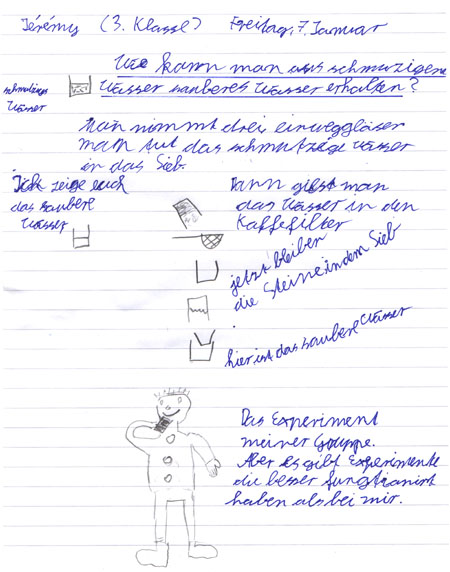 Jérémy (3. Klasse) Freitag, 7. Januar
Wie kann man aus schmuzigene
wasser sauberes Wasser erhalten?
schmuziges
Wasser
Man nimmt drei einweggläser
man tut das schmutzige wasser
in das Sieb.
Ich zeige euch
das saubere
Wasser
Dann gibst man
das Wasser in den
Kaffefilter
jetzt bleiben
die Steine in dem Sieb
hier ist das saubere Wasser
Das Experiment
meiner Gruppe.
Aber es gibt Experimente
die besser fungtianirt
haben als bei mir.